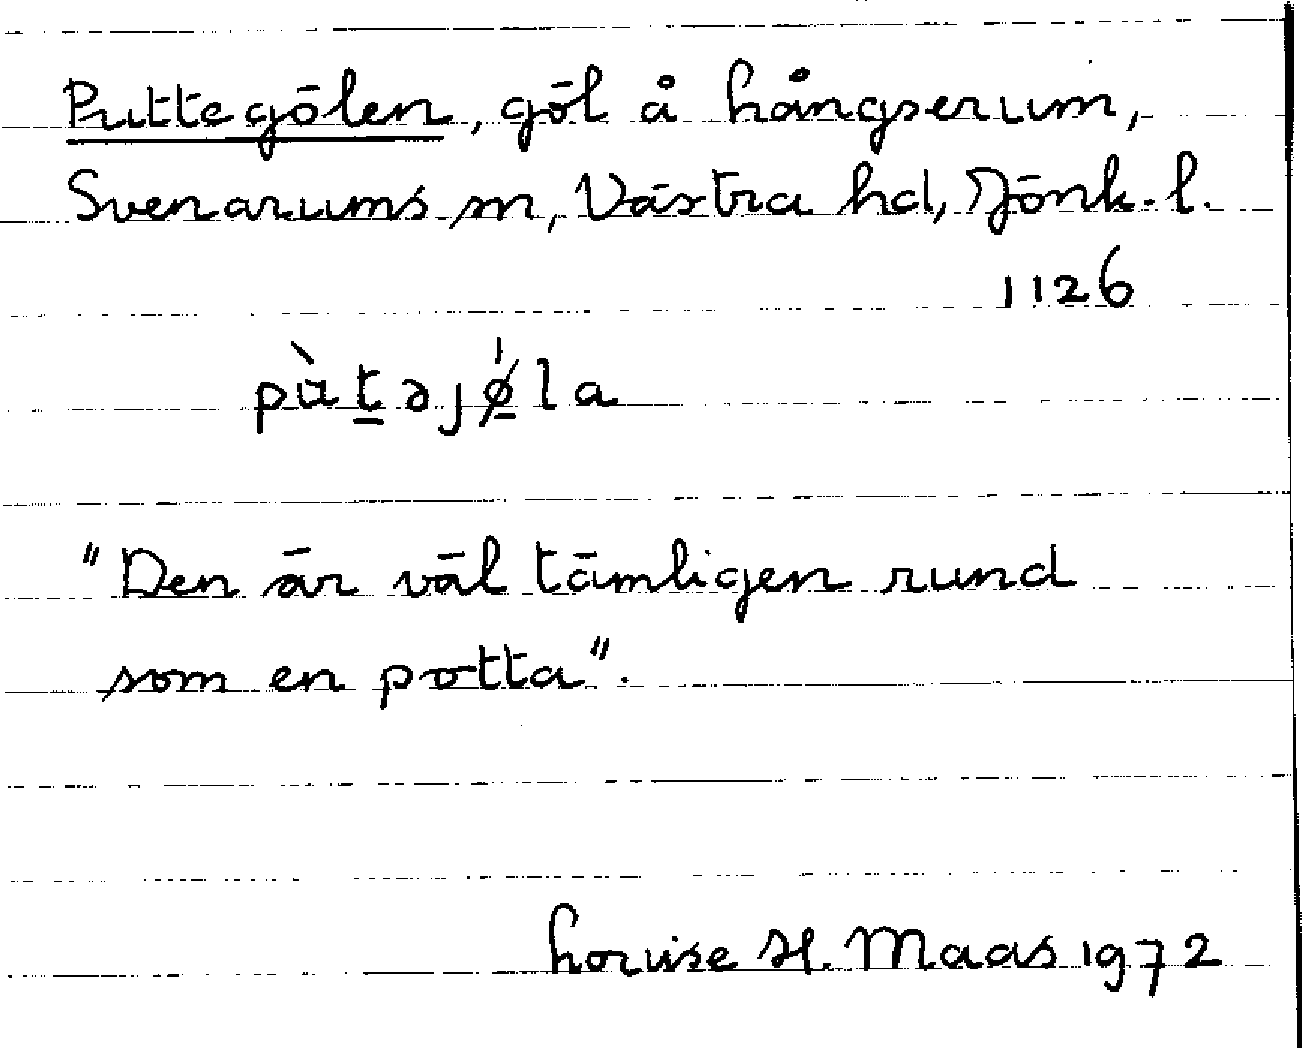 Puttegölen, göl å Långserum,
Svenarums sn, Västra hd, Jönk. l.
1126
pùt̲əjǿ̲la
"Den är väl tämligen rund
som en potta".
Louise H. Maas 1972